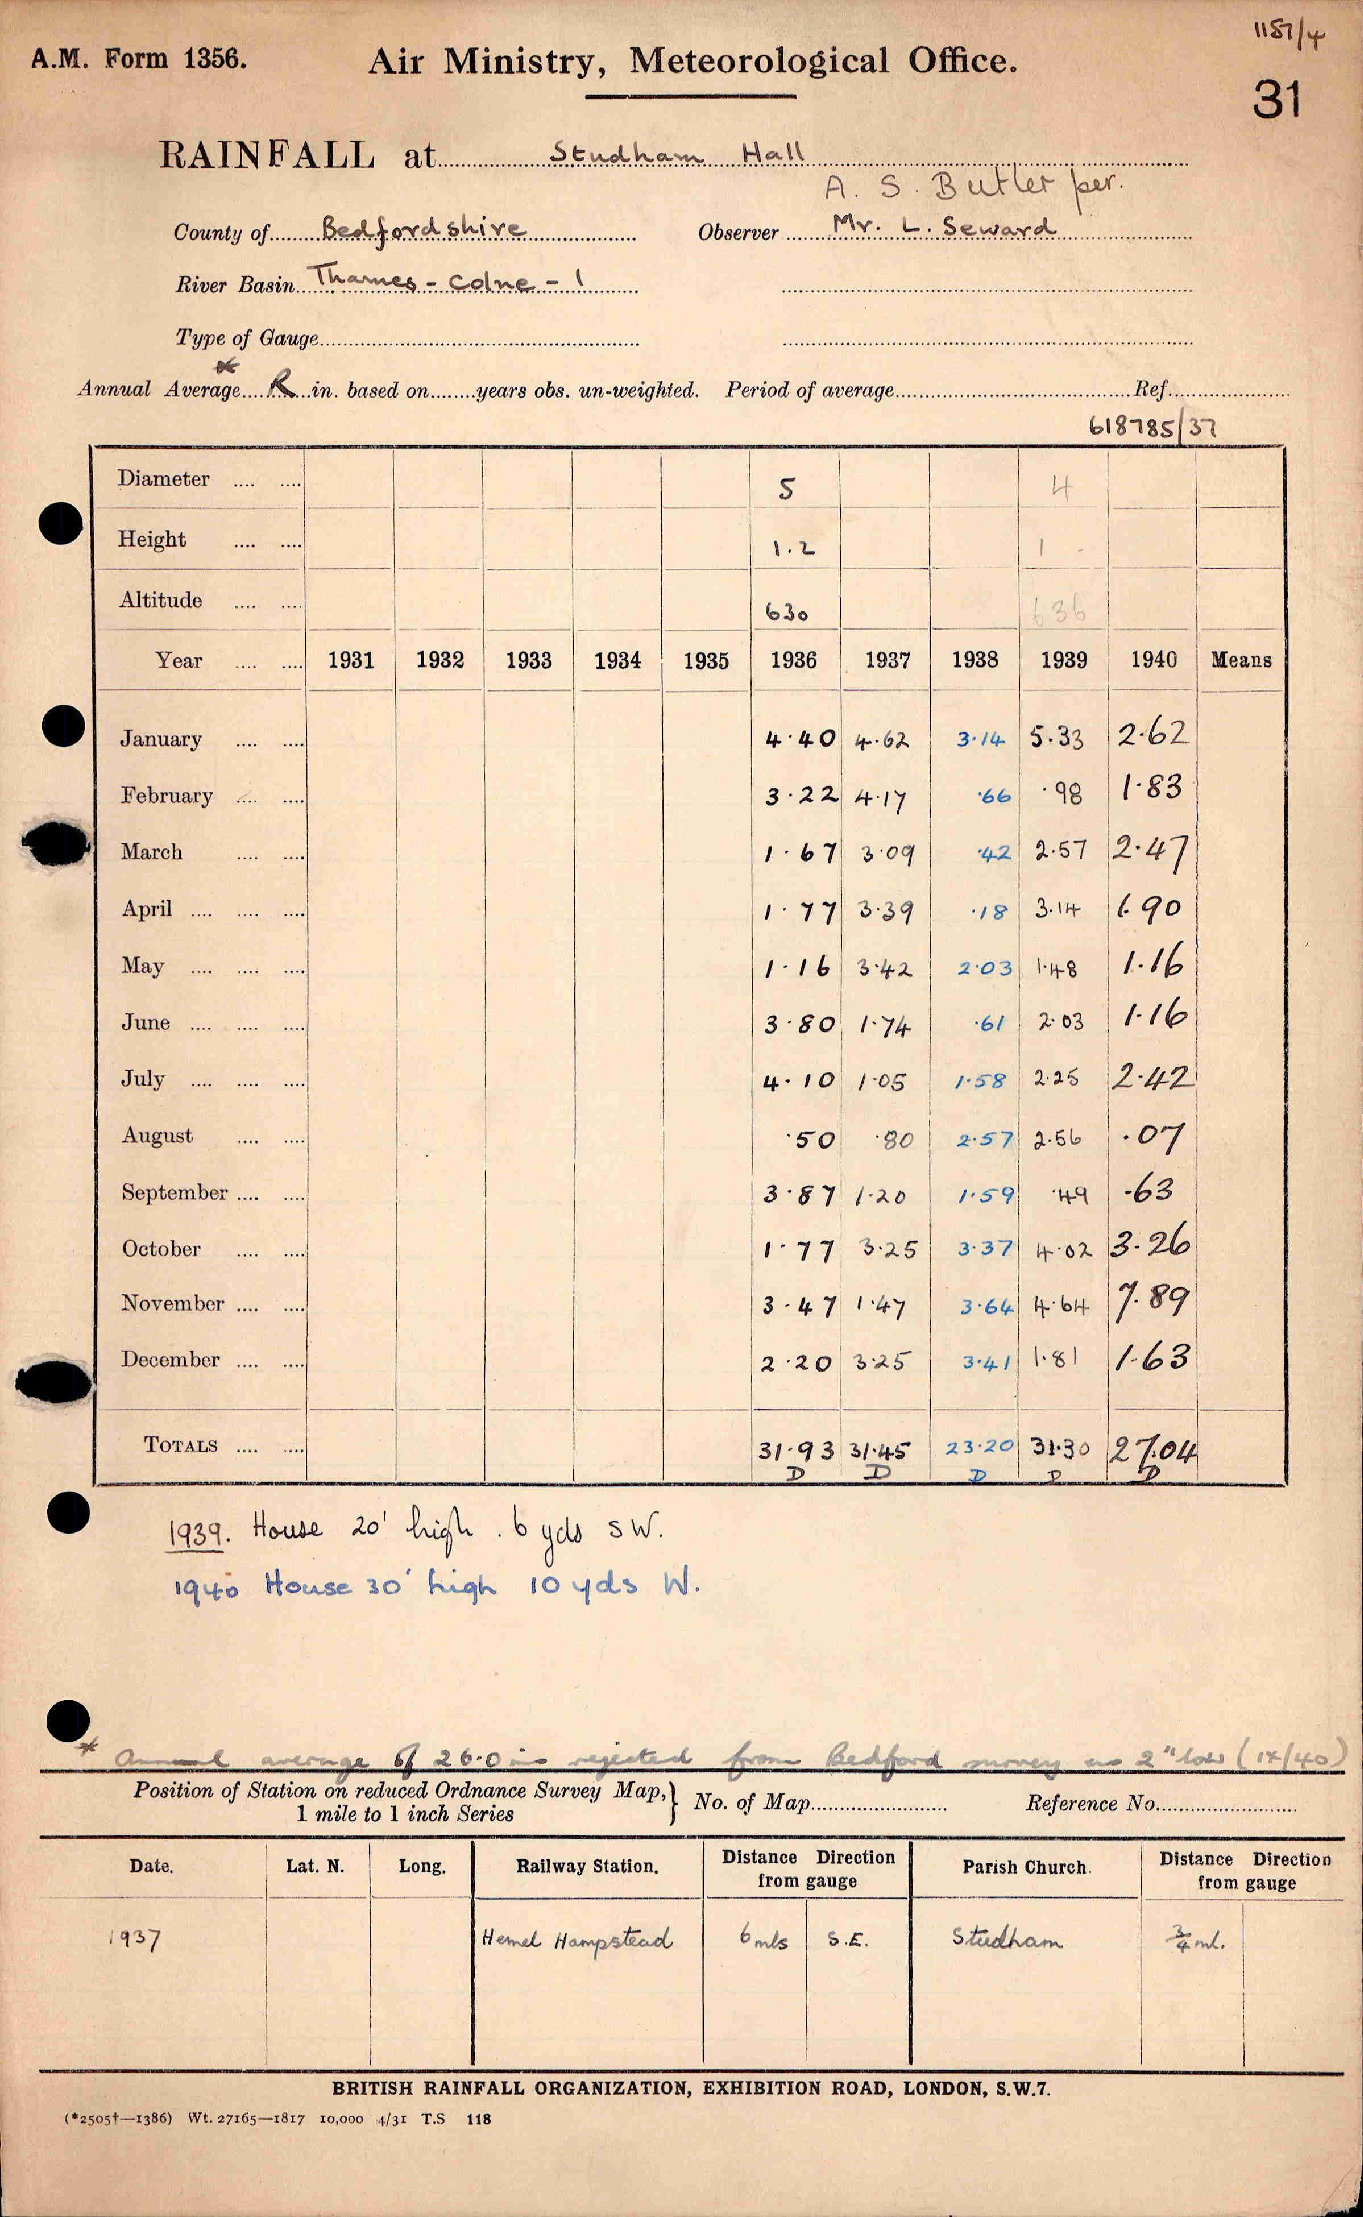 1157/4
A.M. Form 1356. Air Ministry, Meteorological Office.
31
RAINFALL at Studham Hall
A. S. Butler per.
County of Bedfordshire Observer Mr. L. Seward
River Basin Thames - Colne - 1
Type of Gauge
Annual Average * R in. based on years obs. un-weighted. Period of average Ref.
618785/37
Diameter .... .... 5 4
Height .... .... 1.2 1
Altitude .... .... 630 636
Year .... .... 1931 1932 1933 1934 1935 1936 1937 1938 1939 1940 Means
January .... .... 4.40 4.62 3.14 5.33 2.62
February .... .... 3.22 4.17 .66 .98 1.83
March .... .... 1.67 3.09 .42 2.57 2.47
April .... .... .... 1.77 3.39 .18 3.14 1.90
May .... .... .... 1.16 3.42 2.03 1.48 1.16
June .... .... .... 3.80 1.74 .61 2.03 1.16
July .... .... .... 4.10 1.05 1.58 2.25 2.42
August .... .... .50 .80 2.57 2.56 .07
September .... .... 3.87 1.20 1.59 .49 .63
October .... .... 1.77 3.25 3.37 4.02 3.26
November .... .... 3.47 1.47 3.64 4.64 7.89
December .... .... 2.20 3.25 3.41 1.81 1.63
TOTALS .... .... 31.93 31.45 23.20 31.30 27.04
D D D D D
1939. House 20' high . 6 yds SW.
1940 House 30' high 10 yds W.
* Annual average of 26.0 in rejected from Bedford survey as 2" low (IX/40)
Position of Station on reduced Ordnance Survey Map, } No. of Map Reference No.
1 mile to 1 inch Series
Date. Lat. N. Long. Railway Station. Distance Direction from gauge Parish Church. Distance Direction from gauge
1937 Hemel Hampstead 6 mls S.E. Studham 3/4 ml.
BRITISH RAINFALL ORGANIZATION, EXHIBITION ROAD, LONDON, S.W.7.
(*2505†—1386) Wt. 27165—1817 10,000 4/31 T.S 118